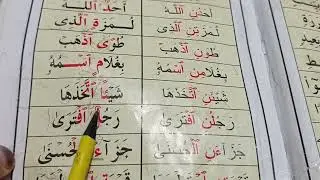 أَحَدُنِ ٱللَّهُ أَحَدٌ ٱللَّهُ
لُمَزَتِنِ ٱلَّذِى لُمَزَةٍ ٱلَّذِى
طُوَنِ ٱذْهَبْ طُوًى ٱذْهَبْ
بِغُلَامِنِ ٱسْمُهُ بِغُلَامٍ ٱسْمُهُ
شَيْئَنِ ٱتَّخَذَهَا شَيْئًا ٱتَّخَذَهَا
رَجُلُنِ ٱفْتَرَى رَجُلٌ ٱفْتَرَى
جَزَآءَنِ ٱلْحُسْنَى جَزَآءً ٱلْحُسْنَى